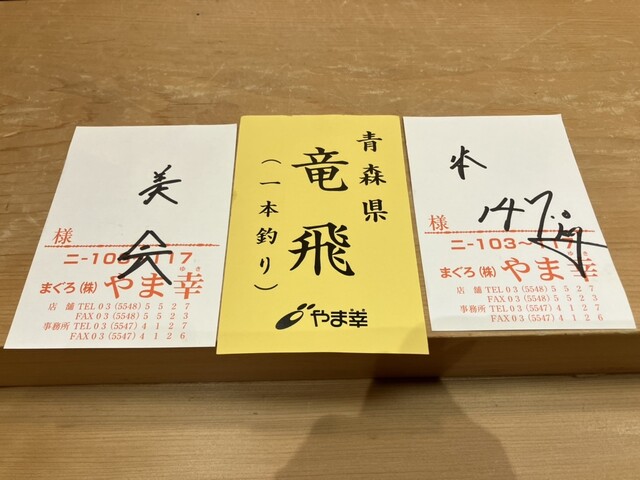 美
様
まぐろ(株) やま幸
ゆき
店 舗 TEL 03 (5548) 5 5 2 7
FAX 03 (5548) 5 5 2 3
事務所 TEL 03 (5547) 4 1 2 7
FAX 03 (5547) 4 1 2 6
青森県
竜飛
(一本釣り)
やま幸
本
様
147.
ニ-103~117
まぐろ(株) やま幸
ゆき
店 舗 TEL 03 (5548) 5 5 2 7
FAX 03 (5548) 5 5 2 3
事務所 TEL 03 (5547) 4 1 2 7
FAX 03 (5547) 4 1 2 6